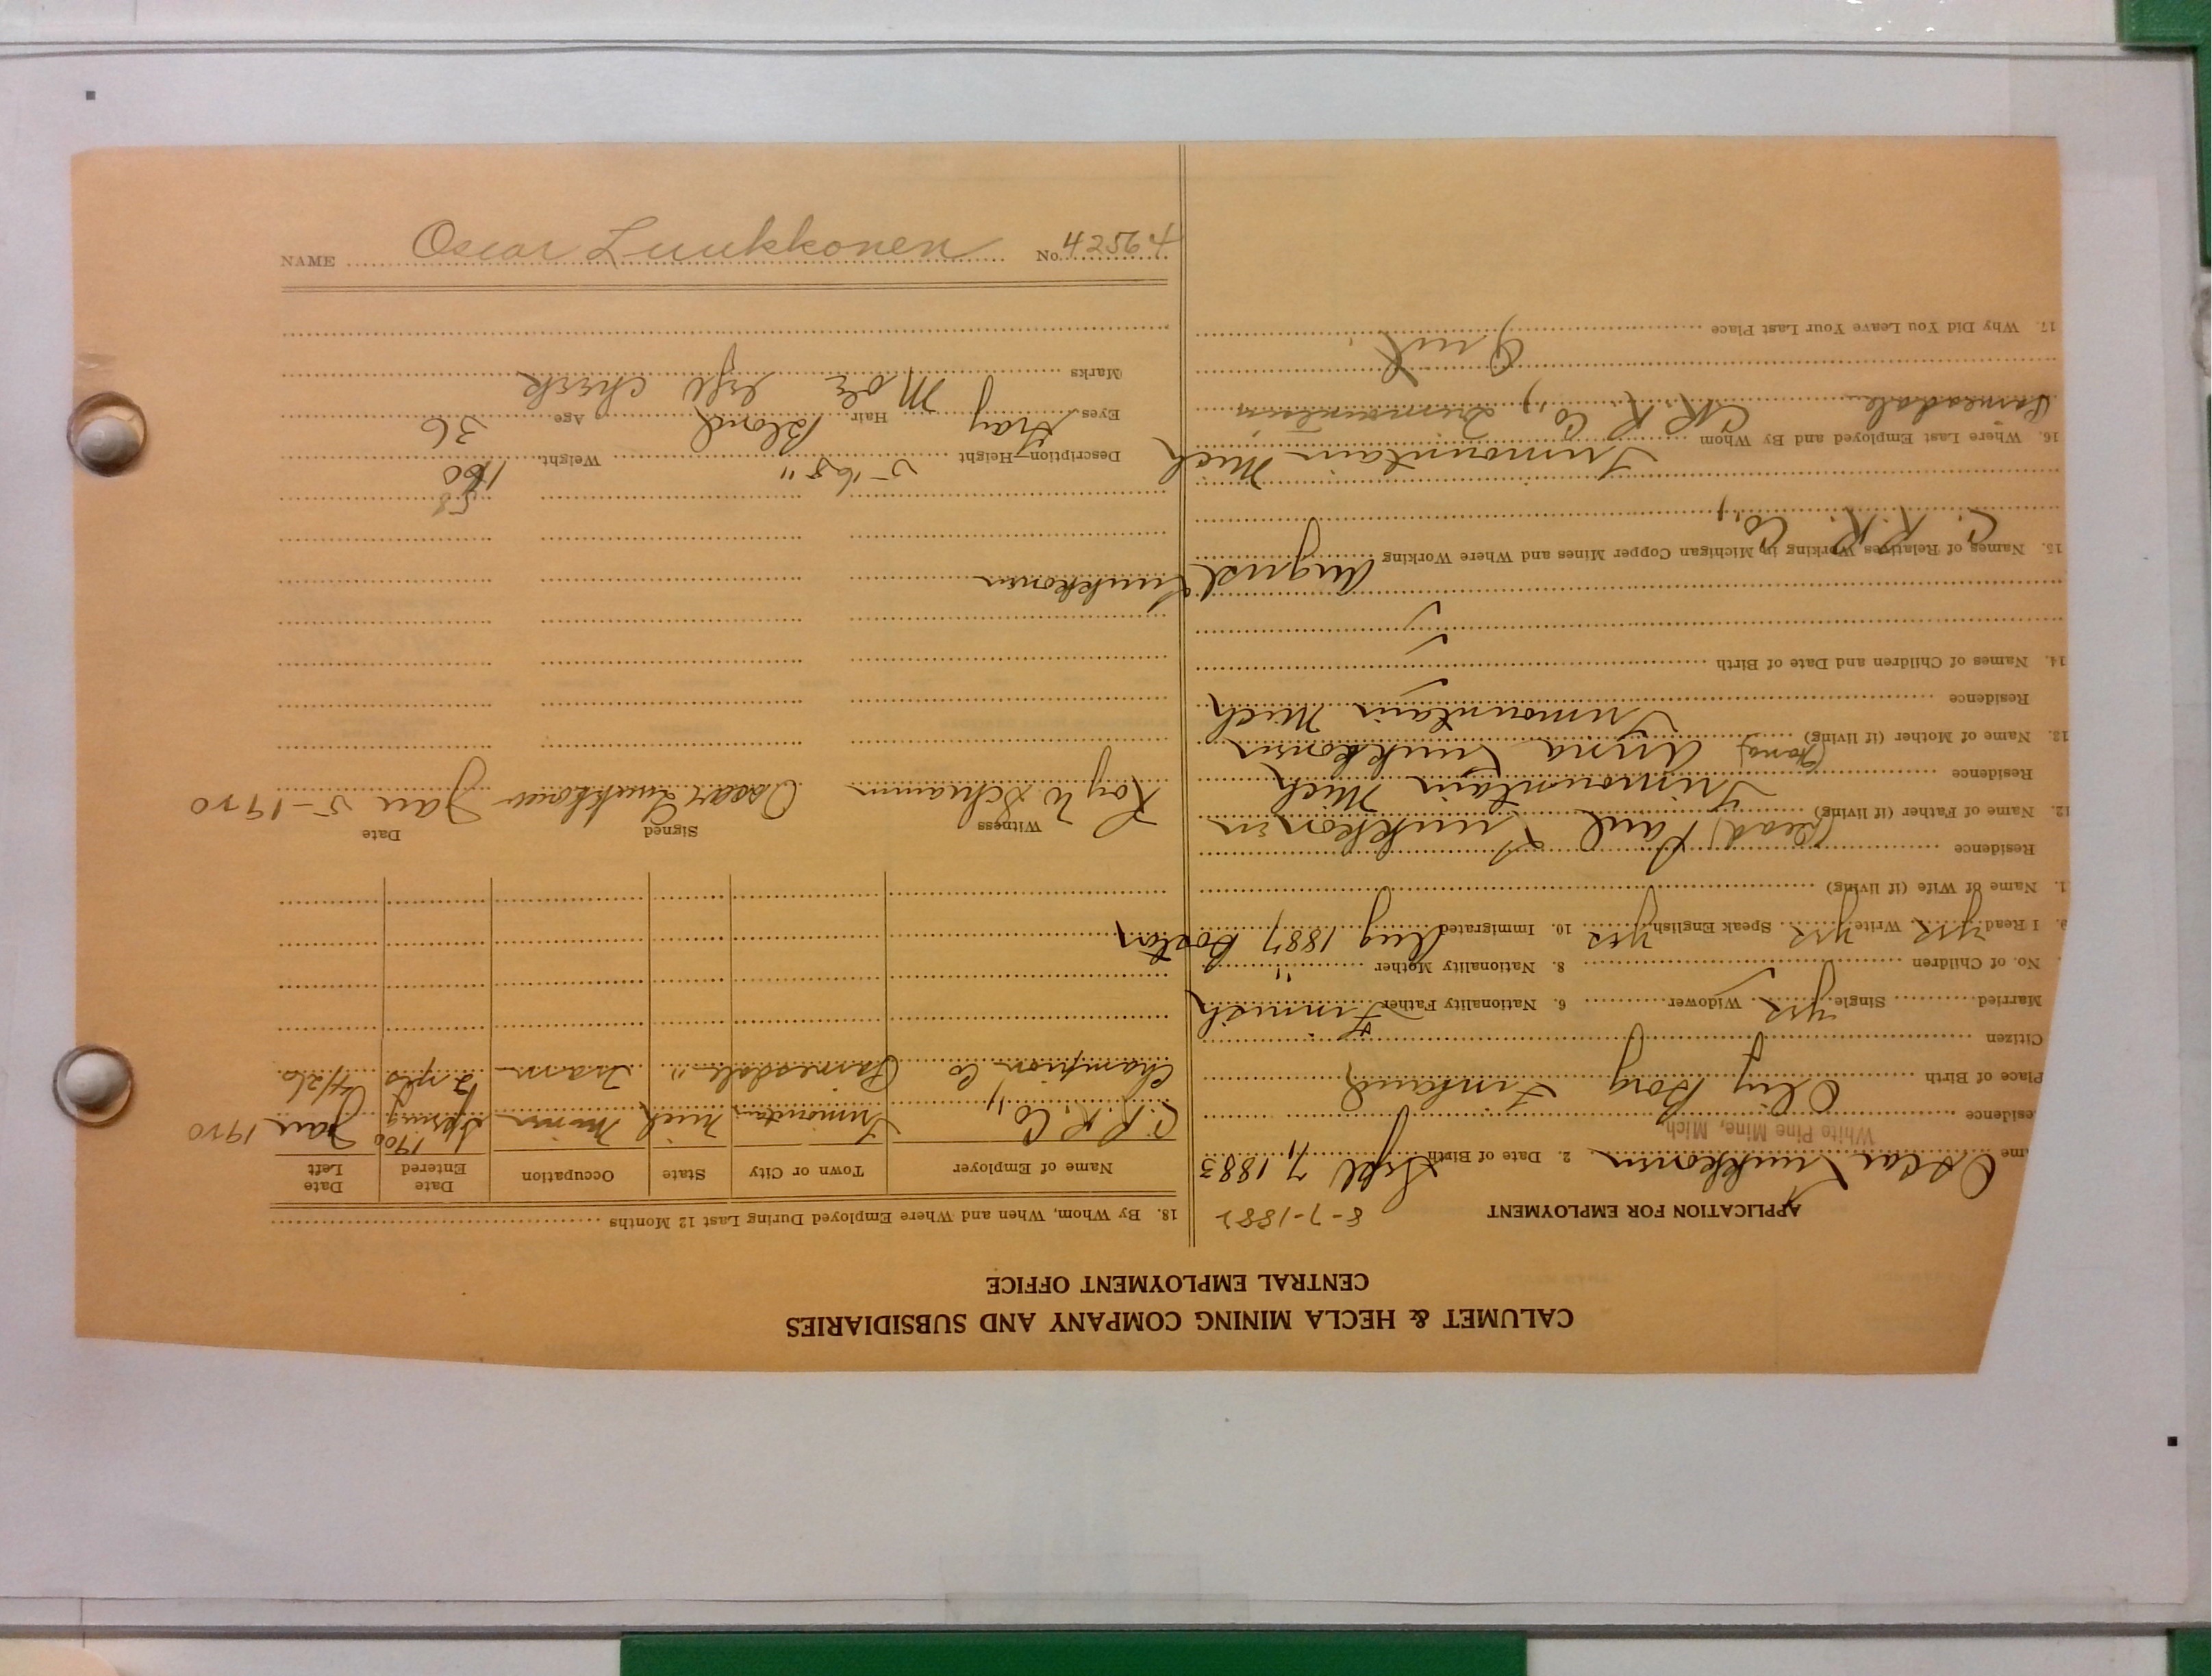 CALUMET & HECLA MINING COMPANY AND SUBSIDIARIES
CENTRAL EMPLOYMENT OFFICE
APPLICATION FOR EMPLOYMENT 8-7-1882
me Oscar Luukkonen 2. Date of Birth Sept 7, 1883
White Pine Mine, Mich.
esidence
Place of Birth Finland
Citizen
Married Single yes Widower 6. Nationality Father Finnish
No. of Children 8. Nationality Mother "
9. I Read yes Write yes Speak English yes 10. Immigrated Aug 1887 Boston
1. Name of Wife (if living)
Residence
12. Name of Father (if living) (Dead) Paul Luukkonen
Residence Trimountain Mich
13. Name of Mother (if living) Anna Luukkonen
Residence Trimountain Mich
14. Names of Children and Date of Birth
15. Names of Relatives Working in Michigan Copper Mines and Where Working August Luukkonen
C. R. R. Co.,
Trimountain Mich
16. Where Last Employed and By Whom
C. R. R. Co., Trimountain
17. Why Did You Leave Your Last Place
Quit
18. By Whom, When and Where Employed During Last 12 Months
Name of Employer Town or City State Occupation Date Entered Date Left
C. R. R. Co., Trimountain Mich Spring 1900 Jan 1920
Champion Co Painesdale " 4/26
Witness Signed Date
Roy W. Schramm Oscar Luukkonen Jan 5-1920
58
Description—Height Weight 160
Eyes Gray Hair Blond Age 36
Marks Mole left cheek
NAME Oscar Luukkonen No. 42564